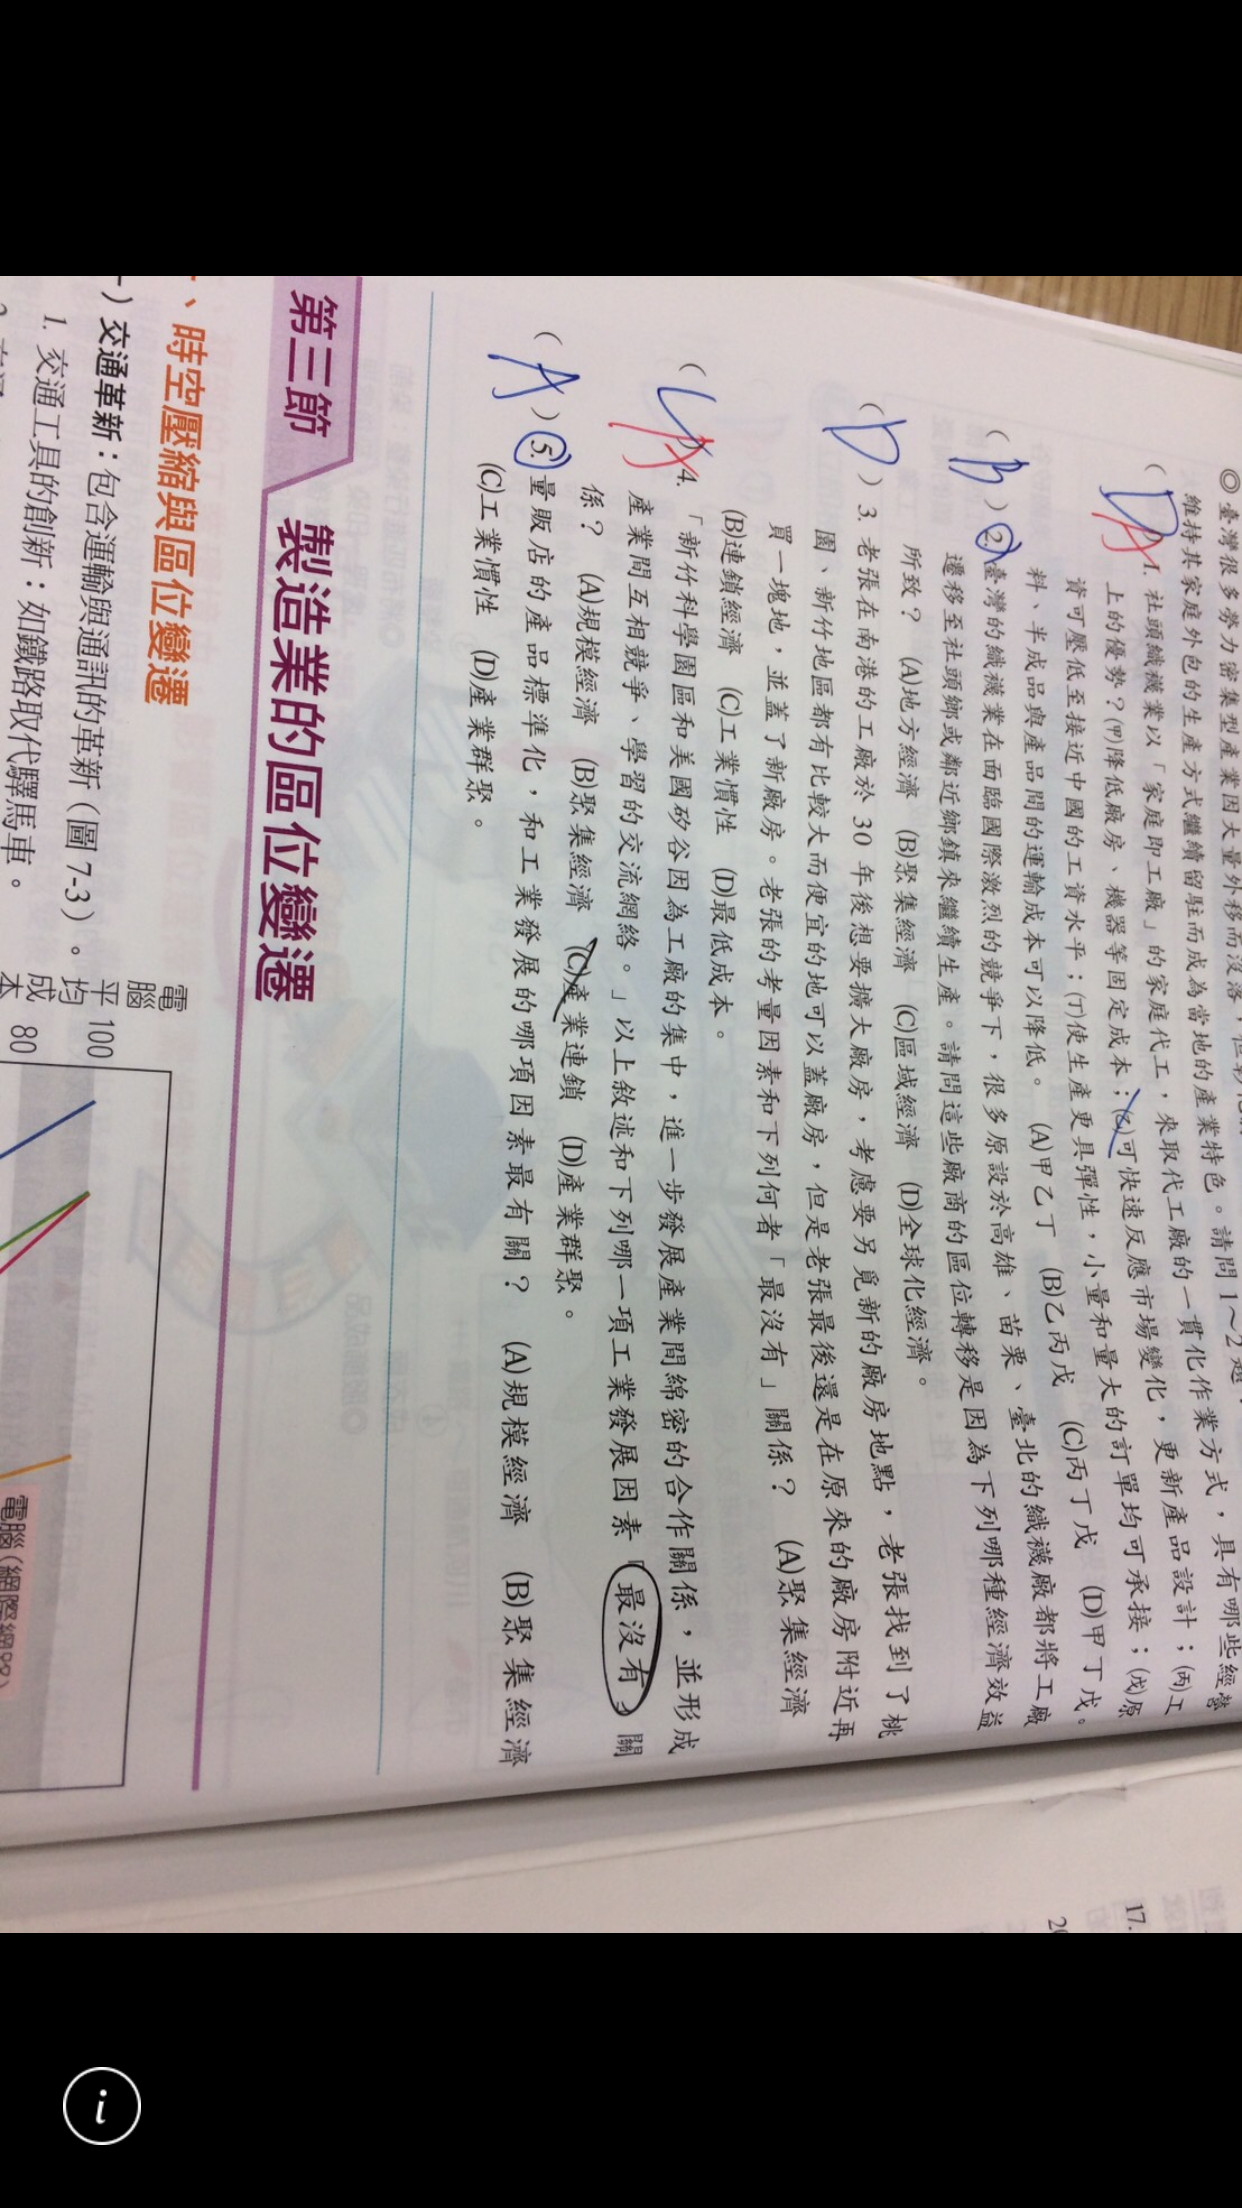 ◎臺灣很多勞力密集型產業因大量外移而沒落，
維持其家庭外包的生產方式繼續留駐而成為當地的產業特色。請問1～2題：
(DA) 1. 社頭織襪業以「家庭即工廠」的家庭代工，來取代工廠的一貫化作業方式，具有哪些經營
上的優勢？(甲)降低廠房、機器等固定成本；(乙)可快速反應市場變化，更新產品設計；(丙)工
資可壓低至接近中國的工資水平；(丁)使生產更具彈性，小量和量大的訂單均可承接；(戊)原
料、半成品與產品間的運輸成本可以降低。 (A)甲乙丁 (B)乙丙戊 (C)丙丁戊 (D)甲丁戊。
(B) 2. 臺灣的織襪業在面臨國際激烈的競爭下，很多原設於高雄、苗栗、臺北的織襪廠都將工廠
遷移至社頭鄉或鄰近鄉鎮來繼續生產。請問這些廠商的區位轉移是因為下列哪種經濟效益
所致？ (A)地方經濟 (B)聚集經濟 (C)區域經濟 (D)全球化經濟。
(D) 3. 老張在南港的工廠於 30 年後想要擴大廠房，考慮要另覓新的廠房地點，老張找到了桃
園、新竹地區都有比較大而便宜的地可以蓋廠房，但是老張最後還是在原來的廠房附近再
買一塊地，並蓋了新廠房。老張的考量因素和下列何者「最沒有」關係？ (A)聚集經濟
(B)連鎖經濟 (C)工業慣性 (D)最低成本。
( A) 4. 「新竹科學園區和美國矽谷因為工廠的集中，進一步發展產業間綿密的合作關係，並形成
產業間互相競爭、學習的交流網絡。」以上敘述和下列哪一項工業發展因素「最沒有」關
係？ (A)規模經濟 (B)聚集經濟 (C)產業連鎖 (D)產業群聚。
(A) 5. 量販店的產品標準化，和工業發展的哪項因素最有關？ (A)規模經濟 (B)聚集經濟
(C)工業慣性 (D)產業群聚。
第三節 製造業的區位變遷
、時空壓縮與區位變遷
) 交通革新：包含運輸與通訊的革新（圖 7-3）。
1. 交通工具的創新：如鐵路取代驛馬車。
電腦
平均成本
100
80
電腦(網際網路)
17.
i